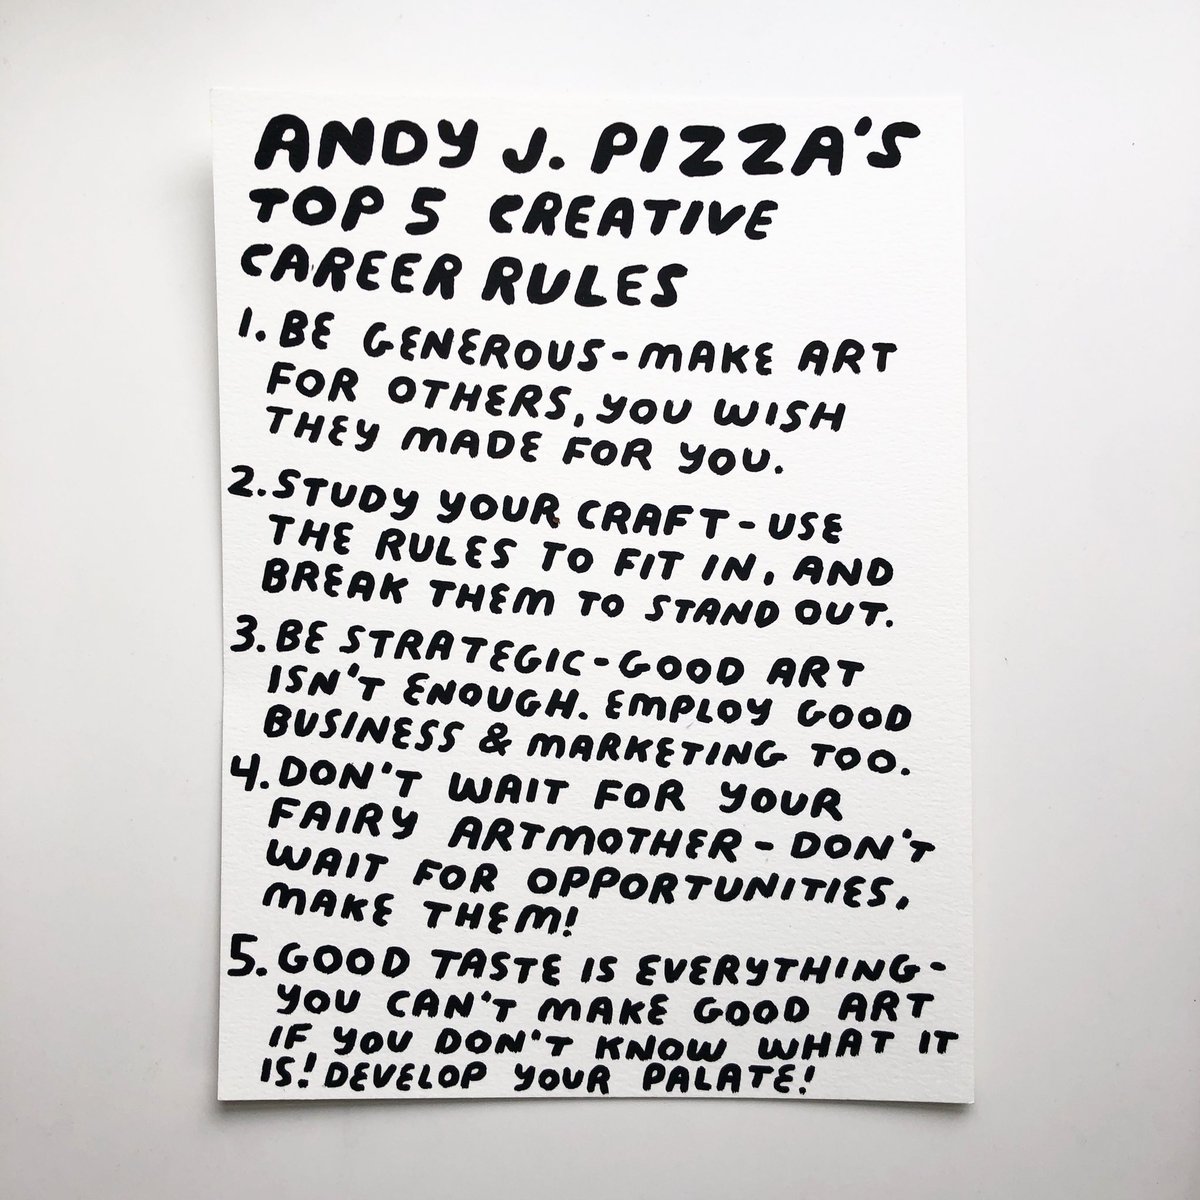 ANDY J. PIZZA'S
TOP 5 CREATIVE
CAREER RULES
1. BE GENEROUS - MAKE ART
FOR OTHERS, YOU WISH
THEY MADE FOR YOU.
2. STUDY YOUR CRAFT - USE
THE RULES TO FIT IN, AND
BREAK THEM TO STAND OUT.
3. BE STRATEGIC - GOOD ART
ISN'T ENOUGH. EMPLOY GOOD
BUSINESS & MARKETING TOO.
4. DON'T WAIT FOR YOUR
FAIRY ARTMOTHER - DON'T
WAIT FOR OPPORTUNITIES,
MAKE THEM!
5. GOOD TASTE IS EVERYTHING -
YOU CAN'T MAKE GOOD ART
IF YOU DON'T KNOW WHAT IT
IS! DEVELOP YOUR PALATE!